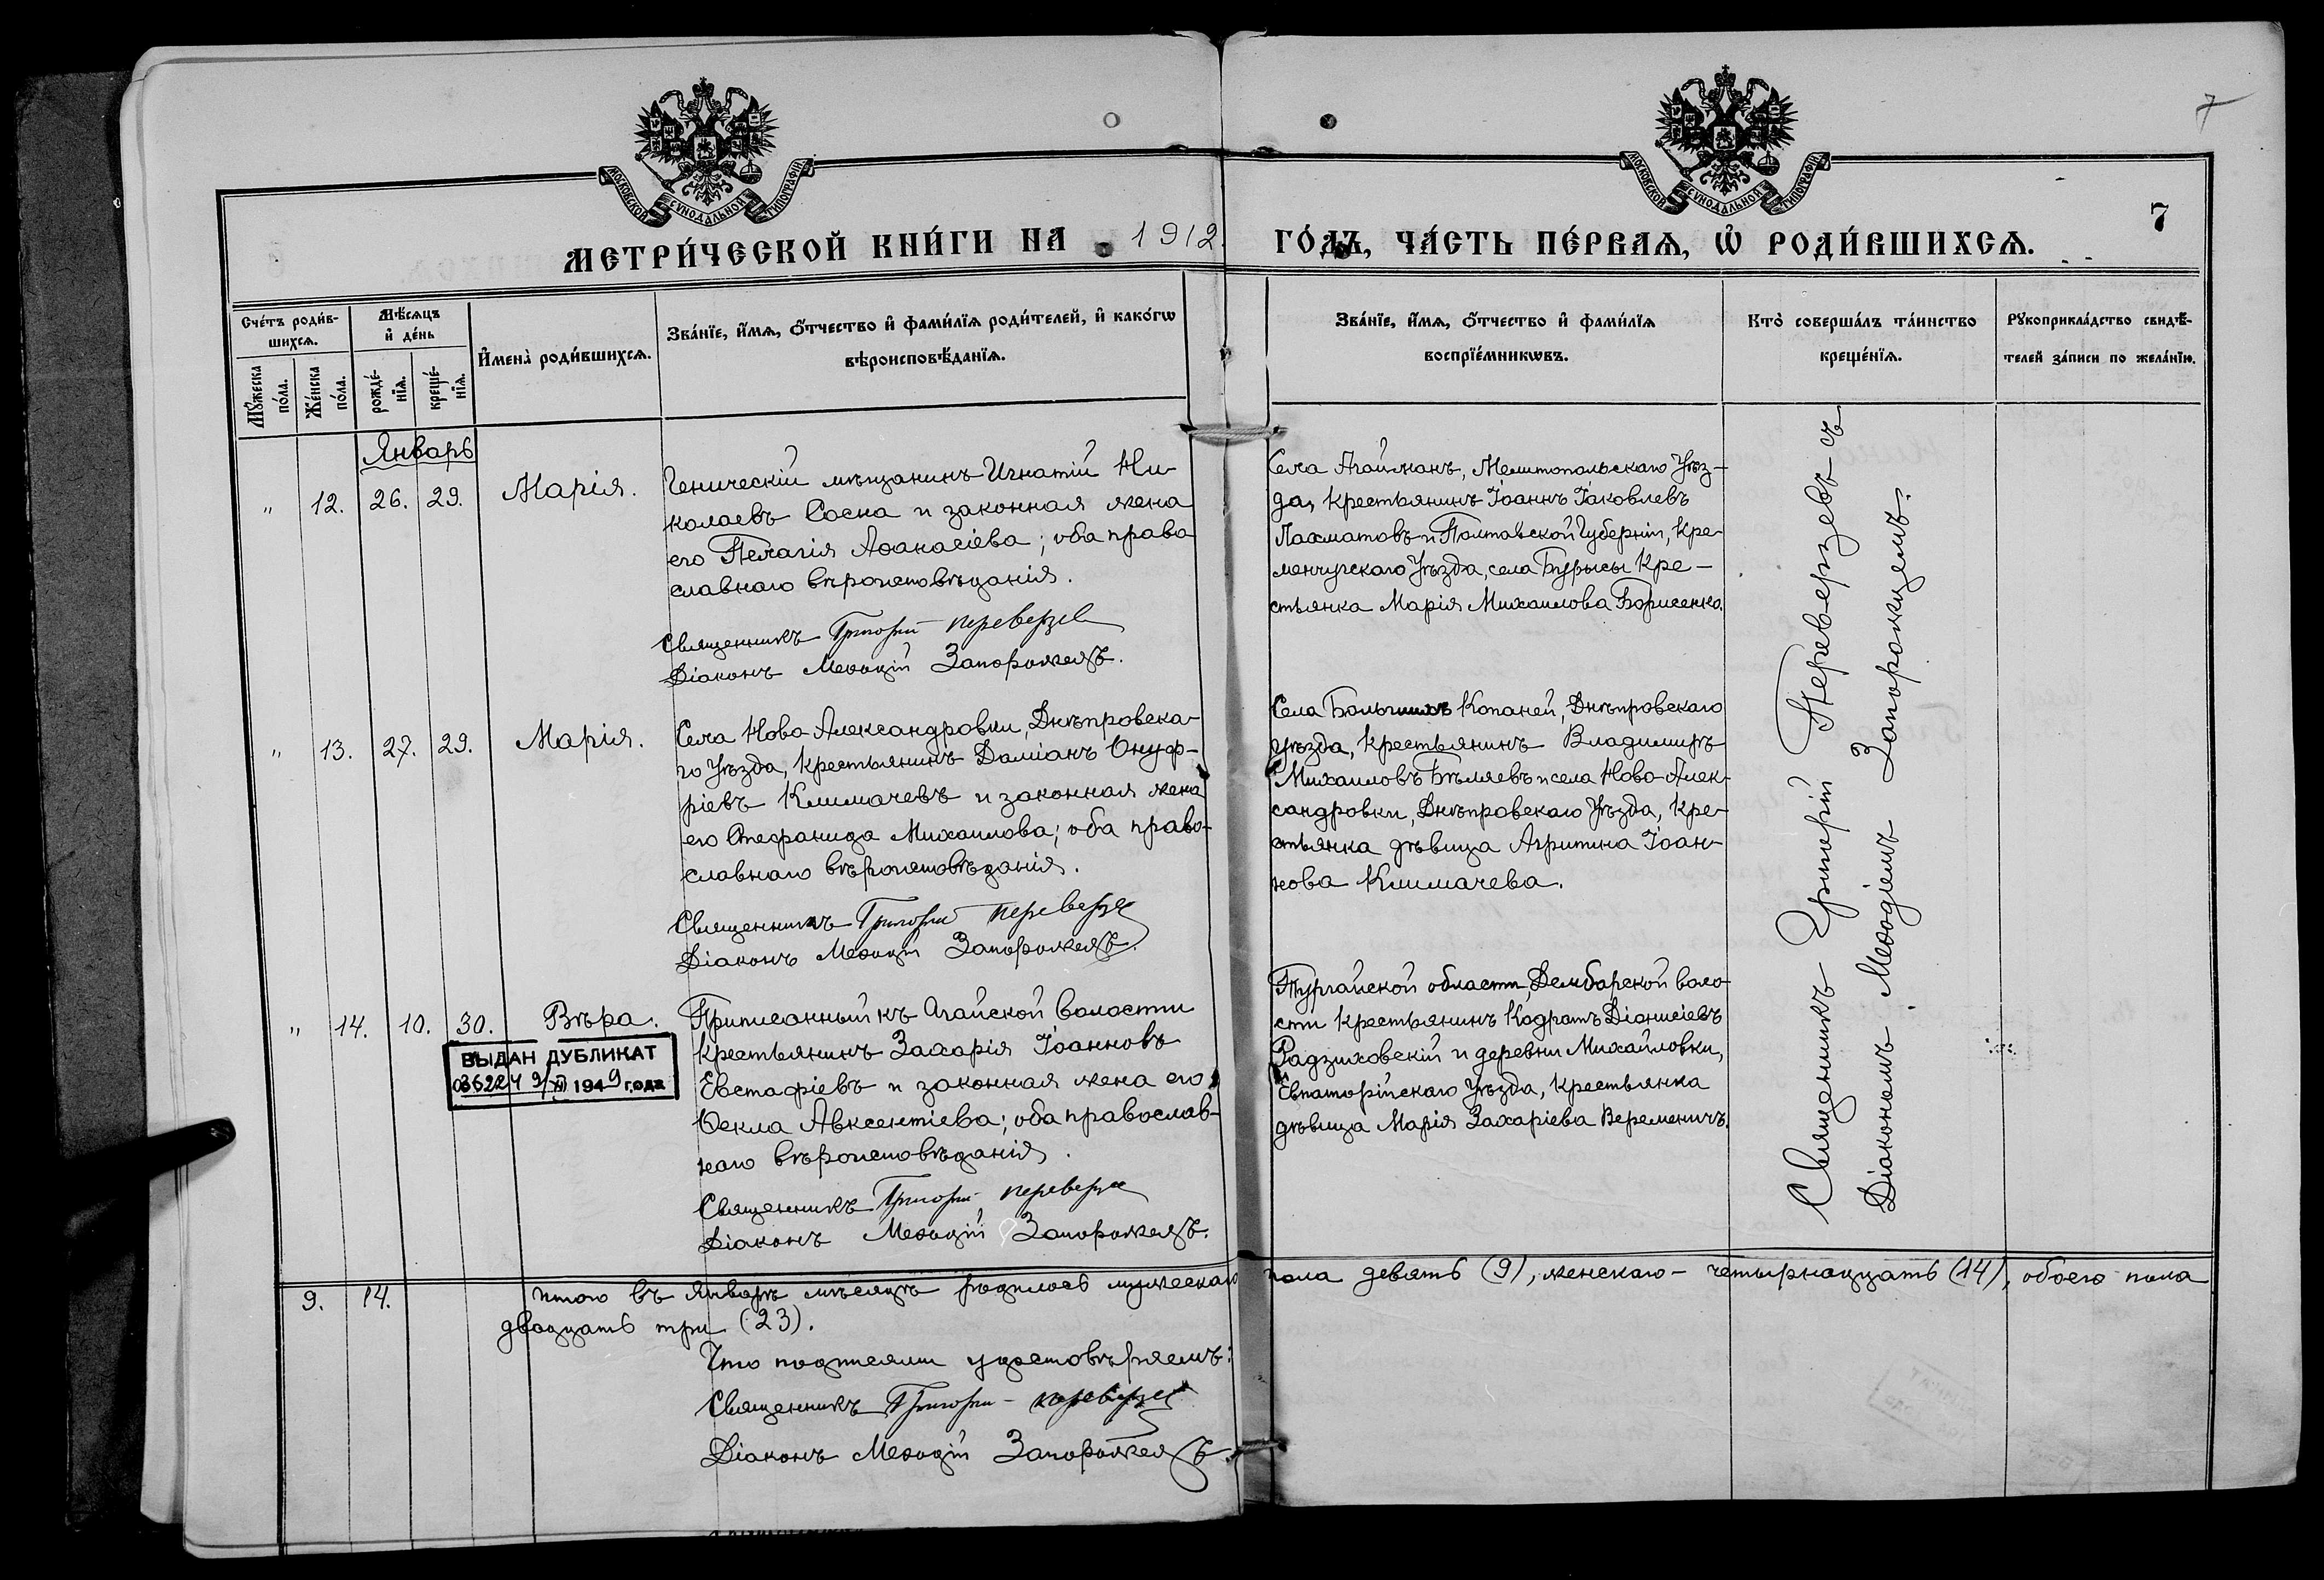 7
МОСКОВСКОЙ СУНОДАЛЬНОЙ ТИПОГРАФІИ
МОСКОВСКОЙ СУНОДАЛЬНОЙ ТИПОГРАФІИ
7
МЕТРИ́ЧЕСКОЙ КНИ́ГИ НА 1912.
ГО́ДЪ, ЧА́СТЬ ПЕ́РВАѦ, Ѡ҆ РОДИ́ВШИХСѦ.
Сче́тъ роди́в-
шихсѧ.
Мꙋ́жеска
по́ла.
Же́нска
по́ла.
Мѣ́сѧцъ
и҆ де́нь
рожде́-
нїѧ.
креще́-
нїѧ.
И҆мена̀ роди́вшихсѧ.
Зва́нїе, и҆́мѧ, ѻ҆́тчество и҆ фами́лїѧ роди́телей, и҆ како́гѡ
вѣроисповѣ́данїѧ.
Зва́нїе, и҆́мѧ, ѻ҆́тчество и҆ фами́лїѧ
воспрїе́мникѡвъ.
Кто̀ соверша́лъ та́инство
креще́нїѧ.
Рꙋкоприкла́дство свидѣ́-
телей за́писи по жела́нїю.
Январь
" 12. 26. 29. Марія.
Геническій мѣщанинъ Игнатій Ни-
колаевъ Сосна и законная жена
его Пелагія Аѳанасіева; оба право
славнаго вѣроисповѣданія.
Священникъ Григорій Переверзев
Діаконъ Меѳодій Запорожецъ.
Села Агайманъ, Мелитопольскаго Уѣз-
да, крестьянинъ Іоаннъ Іаковлевъ
Пахматовъ и Полтавской Губерніи, Кре-
менчугскаго Уѣзда, села Бурысы Кре-
стьянка Марія Михаилова Борисенко.
" 13. 27. 29. Марія.
Села Ново-Александровки, Днѣпровска-
го Уѣзда, крестьянинъ Даміанъ Онуф-
ріевъ Климачевъ и законная жена
его Стефанида Михаилова; оба право-
славнаго вѣроисповѣданія.
Священникъ Григорій Переверзев
Діаконъ Меѳодій Запорожецъ.
Села Большихъ Копаней, Днѣпровскаго
Уѣзда, крестьянинъ Владимиръ
Михаиловъ Бѣляевъ и села Ново-Алек-
сандровки, Днѣпровскаго Уѣзда, кре-
стьянка дѣвица Агрипина Іоан-
нова Климачева.
" 14. 10. 30. Вѣра.
ВЫДАН ДУБЛИКАТ
1949 года
Приписанный къ Агайской волости
крестьянинъ Захарія Іоанновъ
Евстафіевъ и законная жена его
Ѳекла Авксентіева; оба православ-
наго вѣроисповѣданія.
Священникъ Григорій Переверзев
Діаконъ Меѳодій Запорожецъ.
Тургайской области, Дембарской воло-
сти крестьянинъ Кодратъ Діонисіевъ
Радзиховскій и деревни Михайловки,
Евпаторійскаго Уѣзда, крестьянка
дѣвица Марія Захаріева Веременичъ.
Священникъ Григорій Переверзевъ съ
Діакономъ Меѳодіемъ Запорожцемъ.
9. 14. Итого въ Январѣ мѣсяцѣ родилось мужескаго пола девять (9), женскаго - четырнадцать (14), обоего пола
двадцать три (23).
Что подписями удостовѣряемъ:
Священникъ Григорій Переверзев
Діаконъ Меѳодій Запорожецъ.